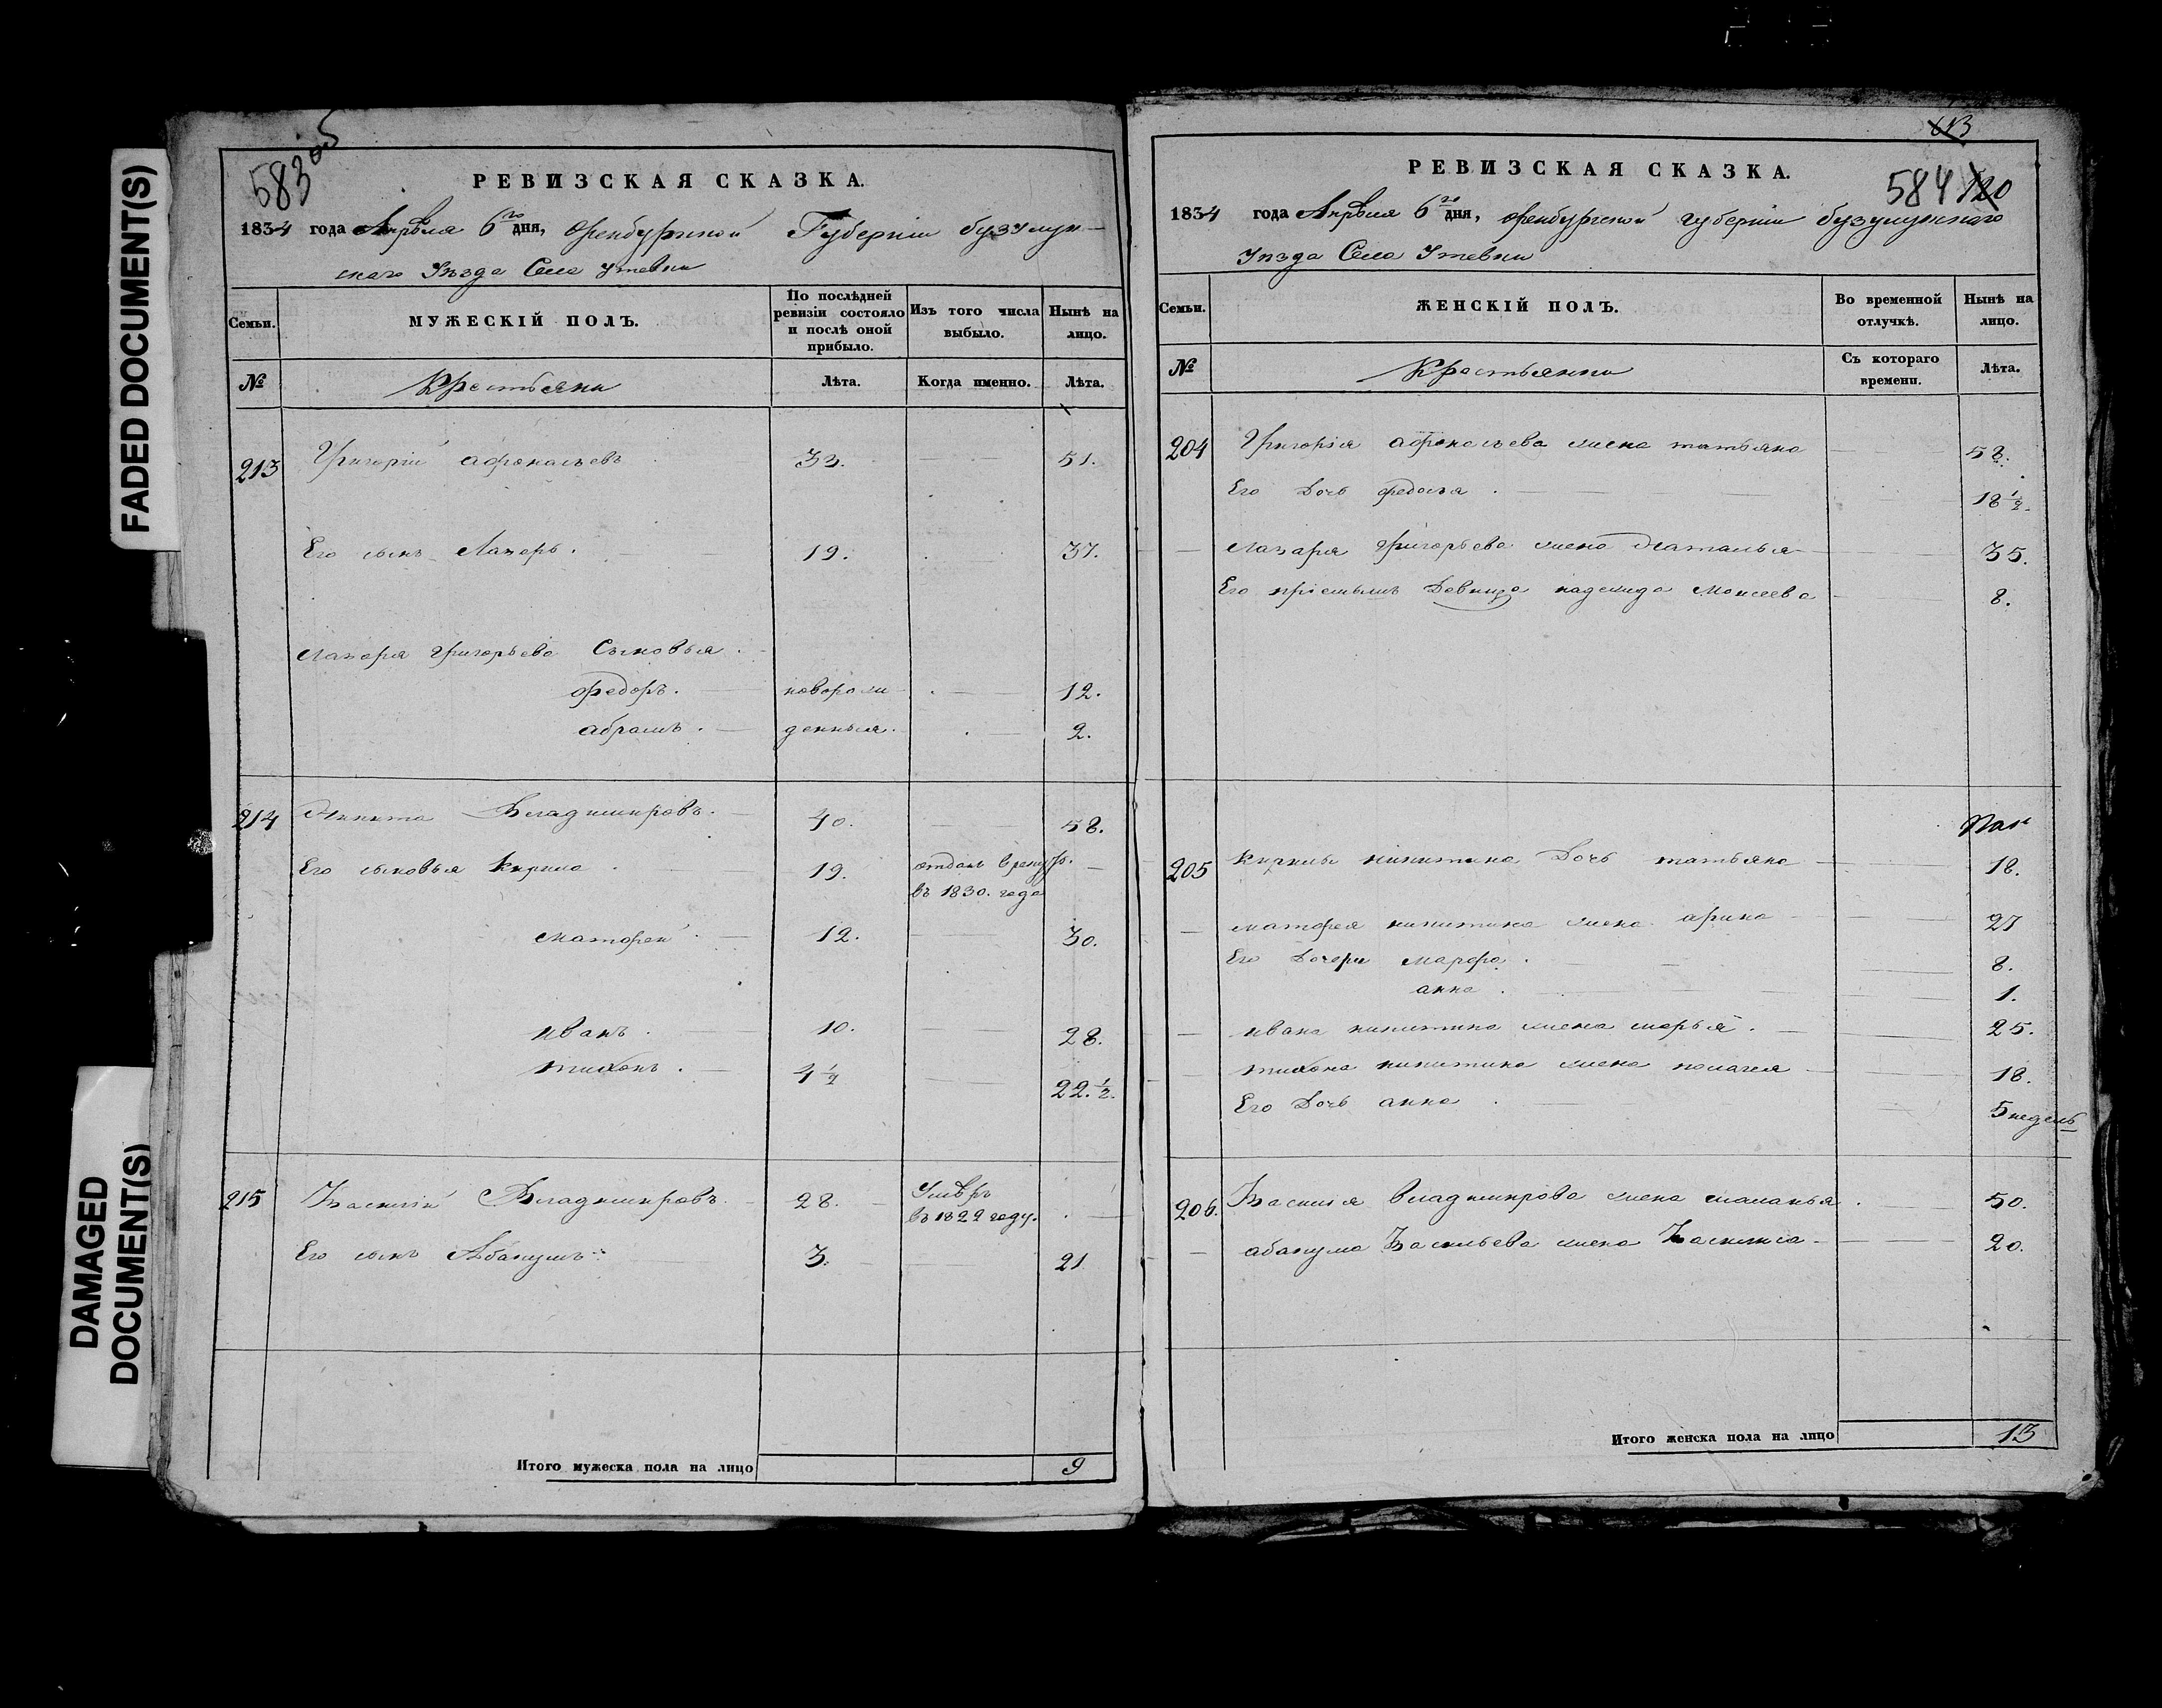 FADED DOCUMENT(S)
DAMAGED
DOCUMENT(S)
583
РЕВИЗСКАЯ СКАЗКА.
1834 года Апрѣля 6го дня, Оренбургской Губерніи бузулук-
скаго Уѣзда Села Утевки
Семьи.
МУЖЕСКІЙ ПОЛЪ.
По послѣдней
ревизіи состояло
и послѣ оной
прибыло.
Изъ того числа
выбыло.
Нынѣ на
лицо.
№
Крестьяни
Лѣта.
Когда именно.
Лѣта.
213 Григорій афонасьевъ 33. 51.
Его сынъ Лазорь. 19. 37.
Лазоря григорьева Сыновья.
федоръ. новорож 12.
абрамъ. денныя. 2.
214 Никита Владимировъ. 40. 58.
Его сыновья Кирила 19. отданъ в рекру.
въ 1830. года
матфей 12. 30.
иванъ. 10. 28.
тихонъ. 4 1/2 22. 1/2.
215 Василій Владимировъ. 28. Умѣръ
въ 1822 году.
Его сынъ Абакумъ 3. 21
Итого мужеска пола на лицо 9
613
РЕВИЗСКАЯ СКАЗКА.
584 120
1834 года Апрѣля 6го дня, оренбургской губерніи бузулукскаго
Уѣзда Села Утевки
Семьи.
ЖЕНСКІЙ ПОЛЪ.
Во временной
отлучкѣ.
Нынѣ на
лицо.
№
Крестьянки
Съ котораго
времени.
Лѣта.
204 Григорія афонасьева жена татьяна 58.
Его Дочь федосья. 18 1/2.
Лазаря григорьева жена Наталья 35.
Его пріемышъ Девица надежда Моисеева 8.
205 Кирилы никитина Дочь татьяна 18.
матфея никитина жена арина 27
Его Дочери марфа. 8.
анна. 1.
ивана никитина жена марья. 25.
тихона никитина жена палагея 18.
Его Дочь анна. 5 недель
206. Василья владимирова жена маланья. 50.
абакума Васильева жена Василиса 20.
Итого женска пола на лицо 13